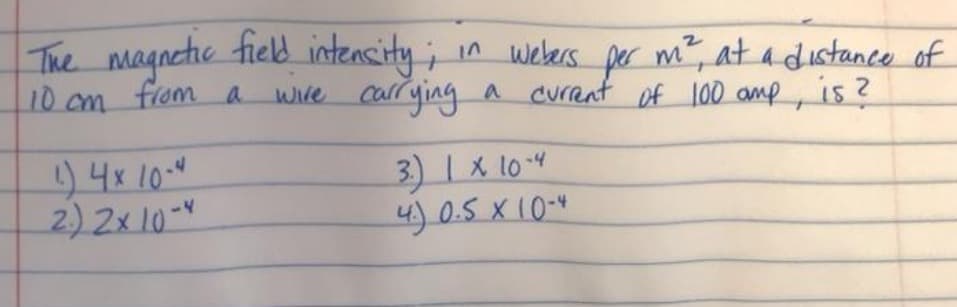 The magnetic field intensity; in webers per m², at a distance of
10 cm from a wire carrying a current of 100 amp, is?
1) 4x 10⁻⁴ 3.) 1 x 10⁻⁴
2.) 2x 10⁻⁴ 4.) 0.5 x 10⁻⁴